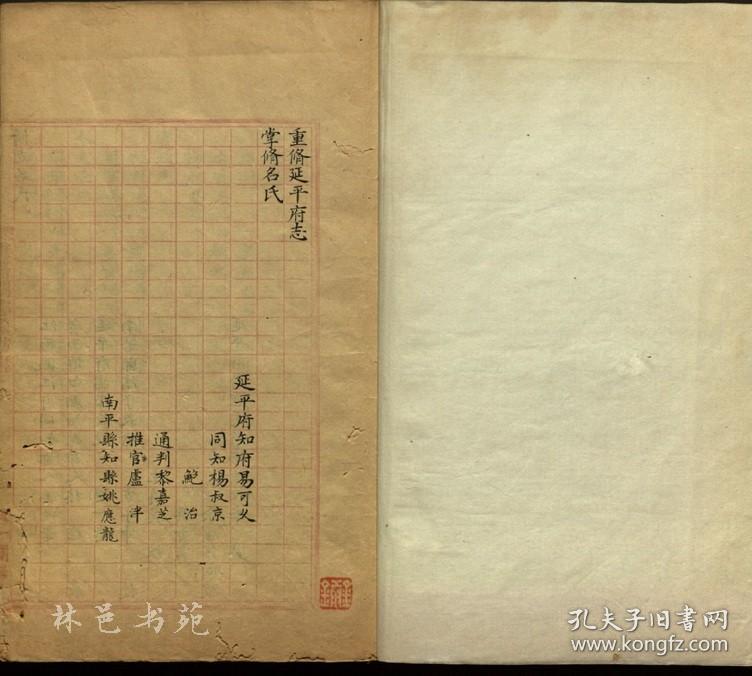 重脩延平府志
掌脩名氏
延平府知府易可久
同知楊叔京
鮑治
通判黎嘉芝
推官盧泮
南平縣知縣姚應龍
林邑书苑
孔夫子旧书网
www.kongfz.com